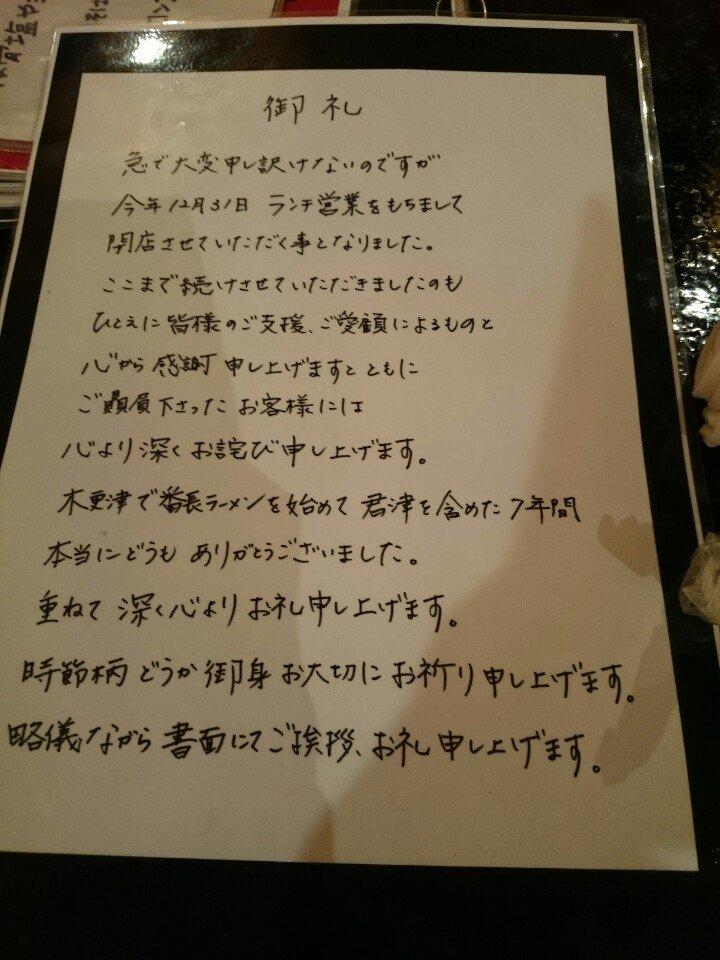 御礼
急で大変申し訳けないのですが
今年12月31日 ランチ営業をもちまして
閉店させていただく事となりました。
ここまで続けさせていただきましたのも
ひとえに皆様のご支援、ご愛顧によるものと
心から感謝申し上げますとともに
ご贔屓下さったお客様には
心より深くお詫び申し上げます。
木更津で番長ラーメンを始めて 君津を含めた7年間
本当にどうもありがとうございました。
重ねて深く心よりお礼申し上げます。
時節柄どうか御身お大切にお祈り申し上げます。
略儀ながら書面にてご挨拶、お礼申し上げます。